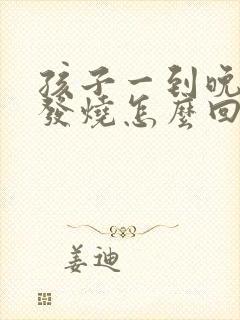 孩子一到晚
發燒怎麼回
姜迪